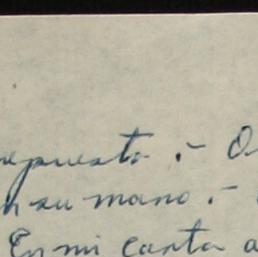 repuesto. - O
n su mano. -
En mi carta a